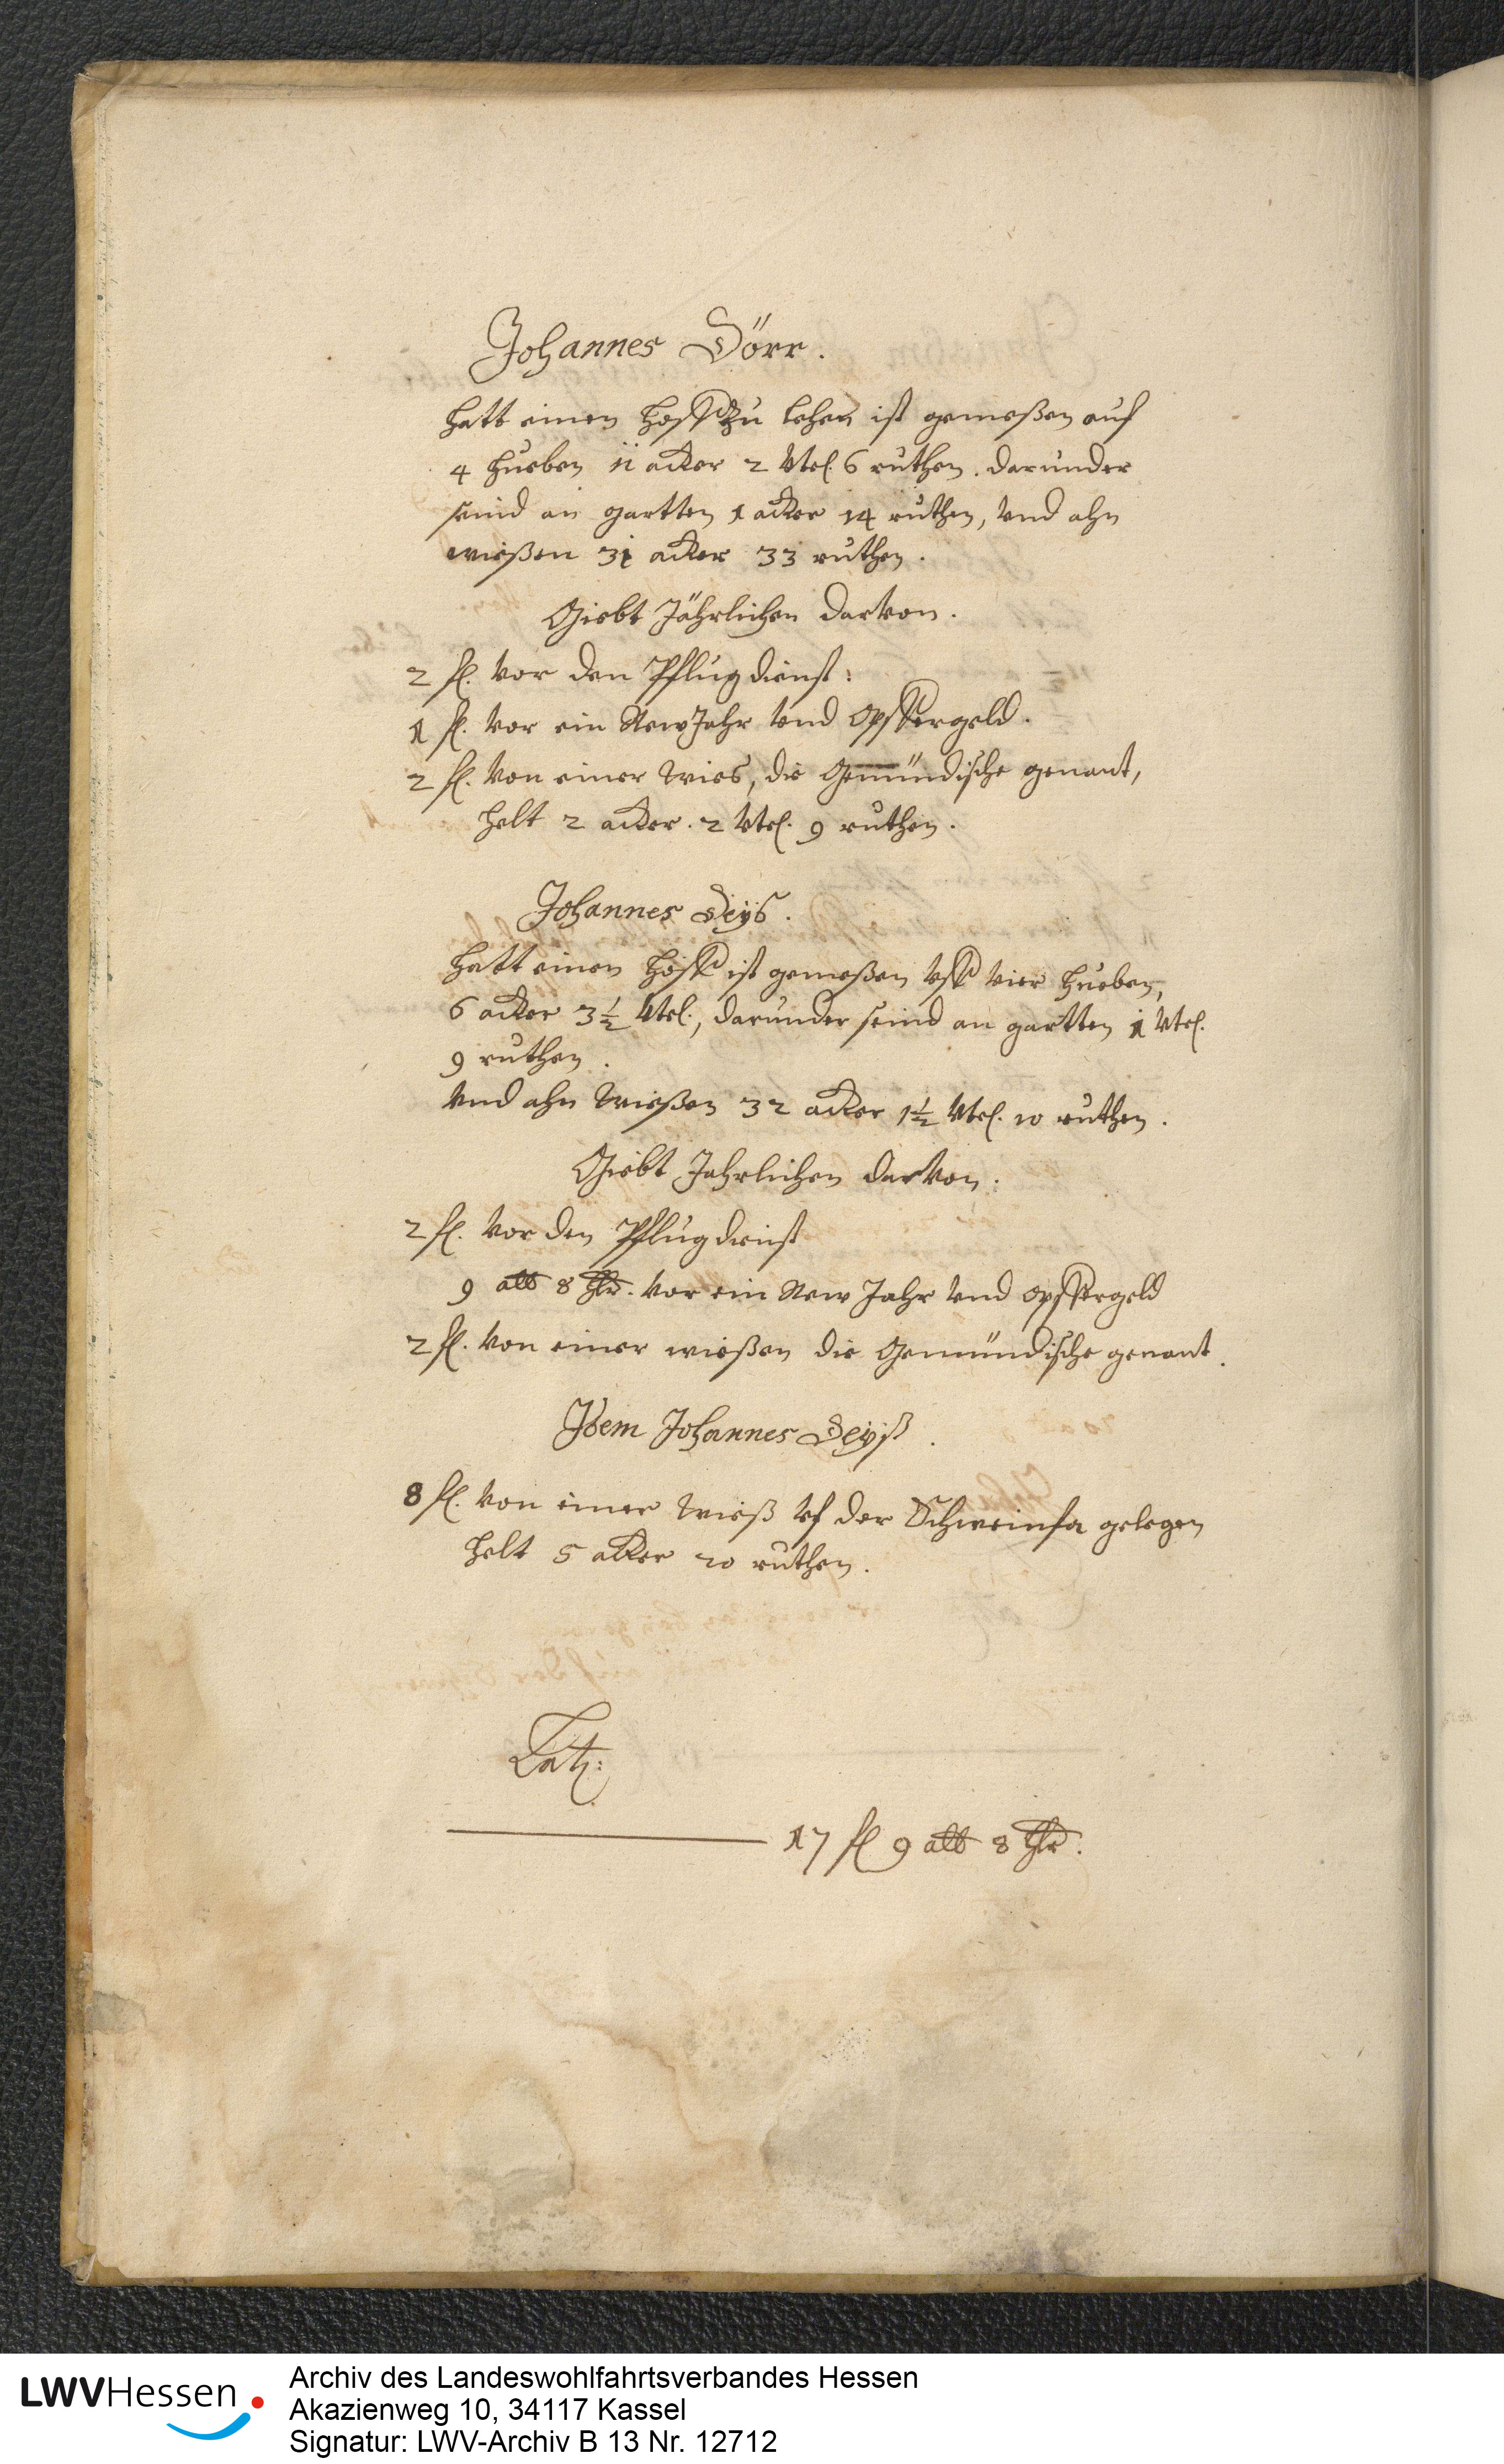 Johannes Dörr.
Hatt einen Hoff zu Lehen ist gemeßen auf
4 Hueben 11 acker 2 Vtel. 6 ruthen. darunder
seind an gartten 1 acker 14 ruthen, Vnd ahn
wießen 31 acker 33 ruthen.
Giebt Jährlichen darVon.
2 fl. Vor den Pflugdienst:
1 fl. Vor ein NewJahr Vnd Opffergeld.
2 fl. Von einer Wies, die Gemündische genant,
helt 2 acker. 2 Vtel. 9 ruthen.
Johannes Deÿs.
Hatt einen Hoff ist gemeßen Vff Vier Hueben,
6 acker 3½ Vtel., darunder seind an gartten 1 Vtel.
9 ruthen.
Vnd ahn Wießen 32 acker 1½ Vtel. 10 ruthen.
Giebt Jahrlichen darVon.
2 fl. Vor den Pflugdienst
9 alb 8 hlr. Vor ein New Jahr Vnd Opffergeld
2 fl. Von einer wießen die Gemündische genant.
Idem Johannes Deÿß.
8 fl. Von einer Wieß Vf der Schweinfa gelegen
helt 5 acker 20 ruthen.
Latq:
17 fl 9 alb 8 hlr.
LWVHessen
Archiv des Landeswohlfahrtsverbandes Hessen
Akazienweg 10, 34117 Kassel
Signatur: LWV-Archiv B 13 Nr. 12712